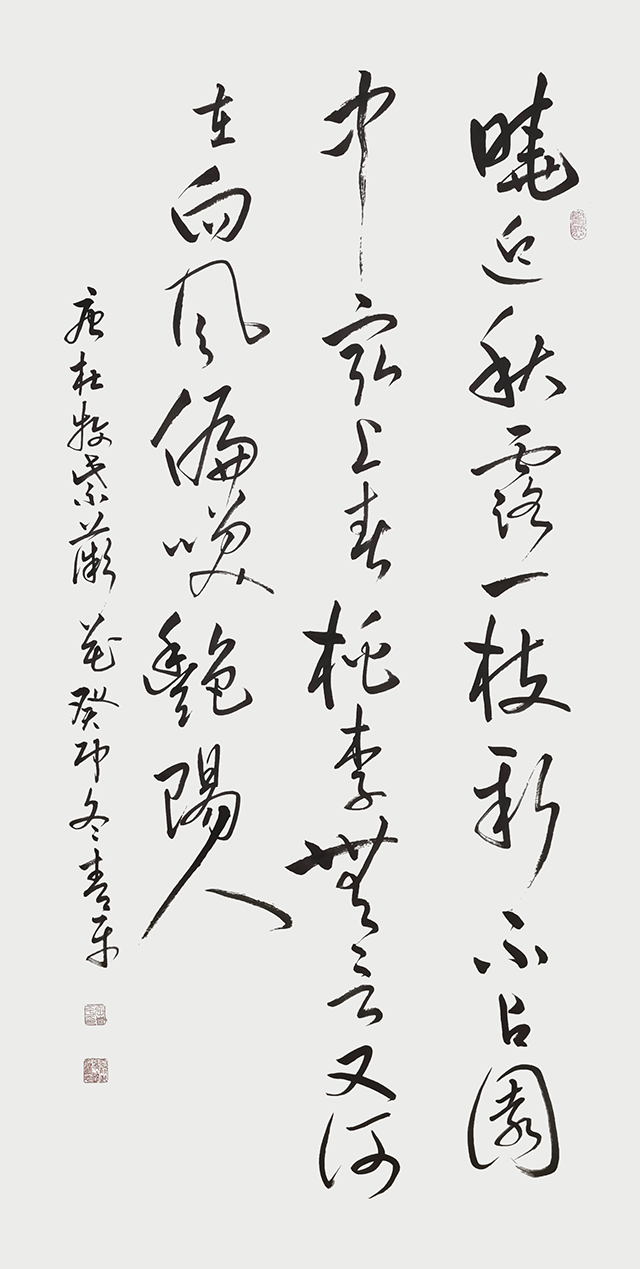 曉迎秋露一枝新不占園
中最上春桃李無言又何
在向風偏咲艷陽人
唐杜牧紫薇花癸卯冬青平